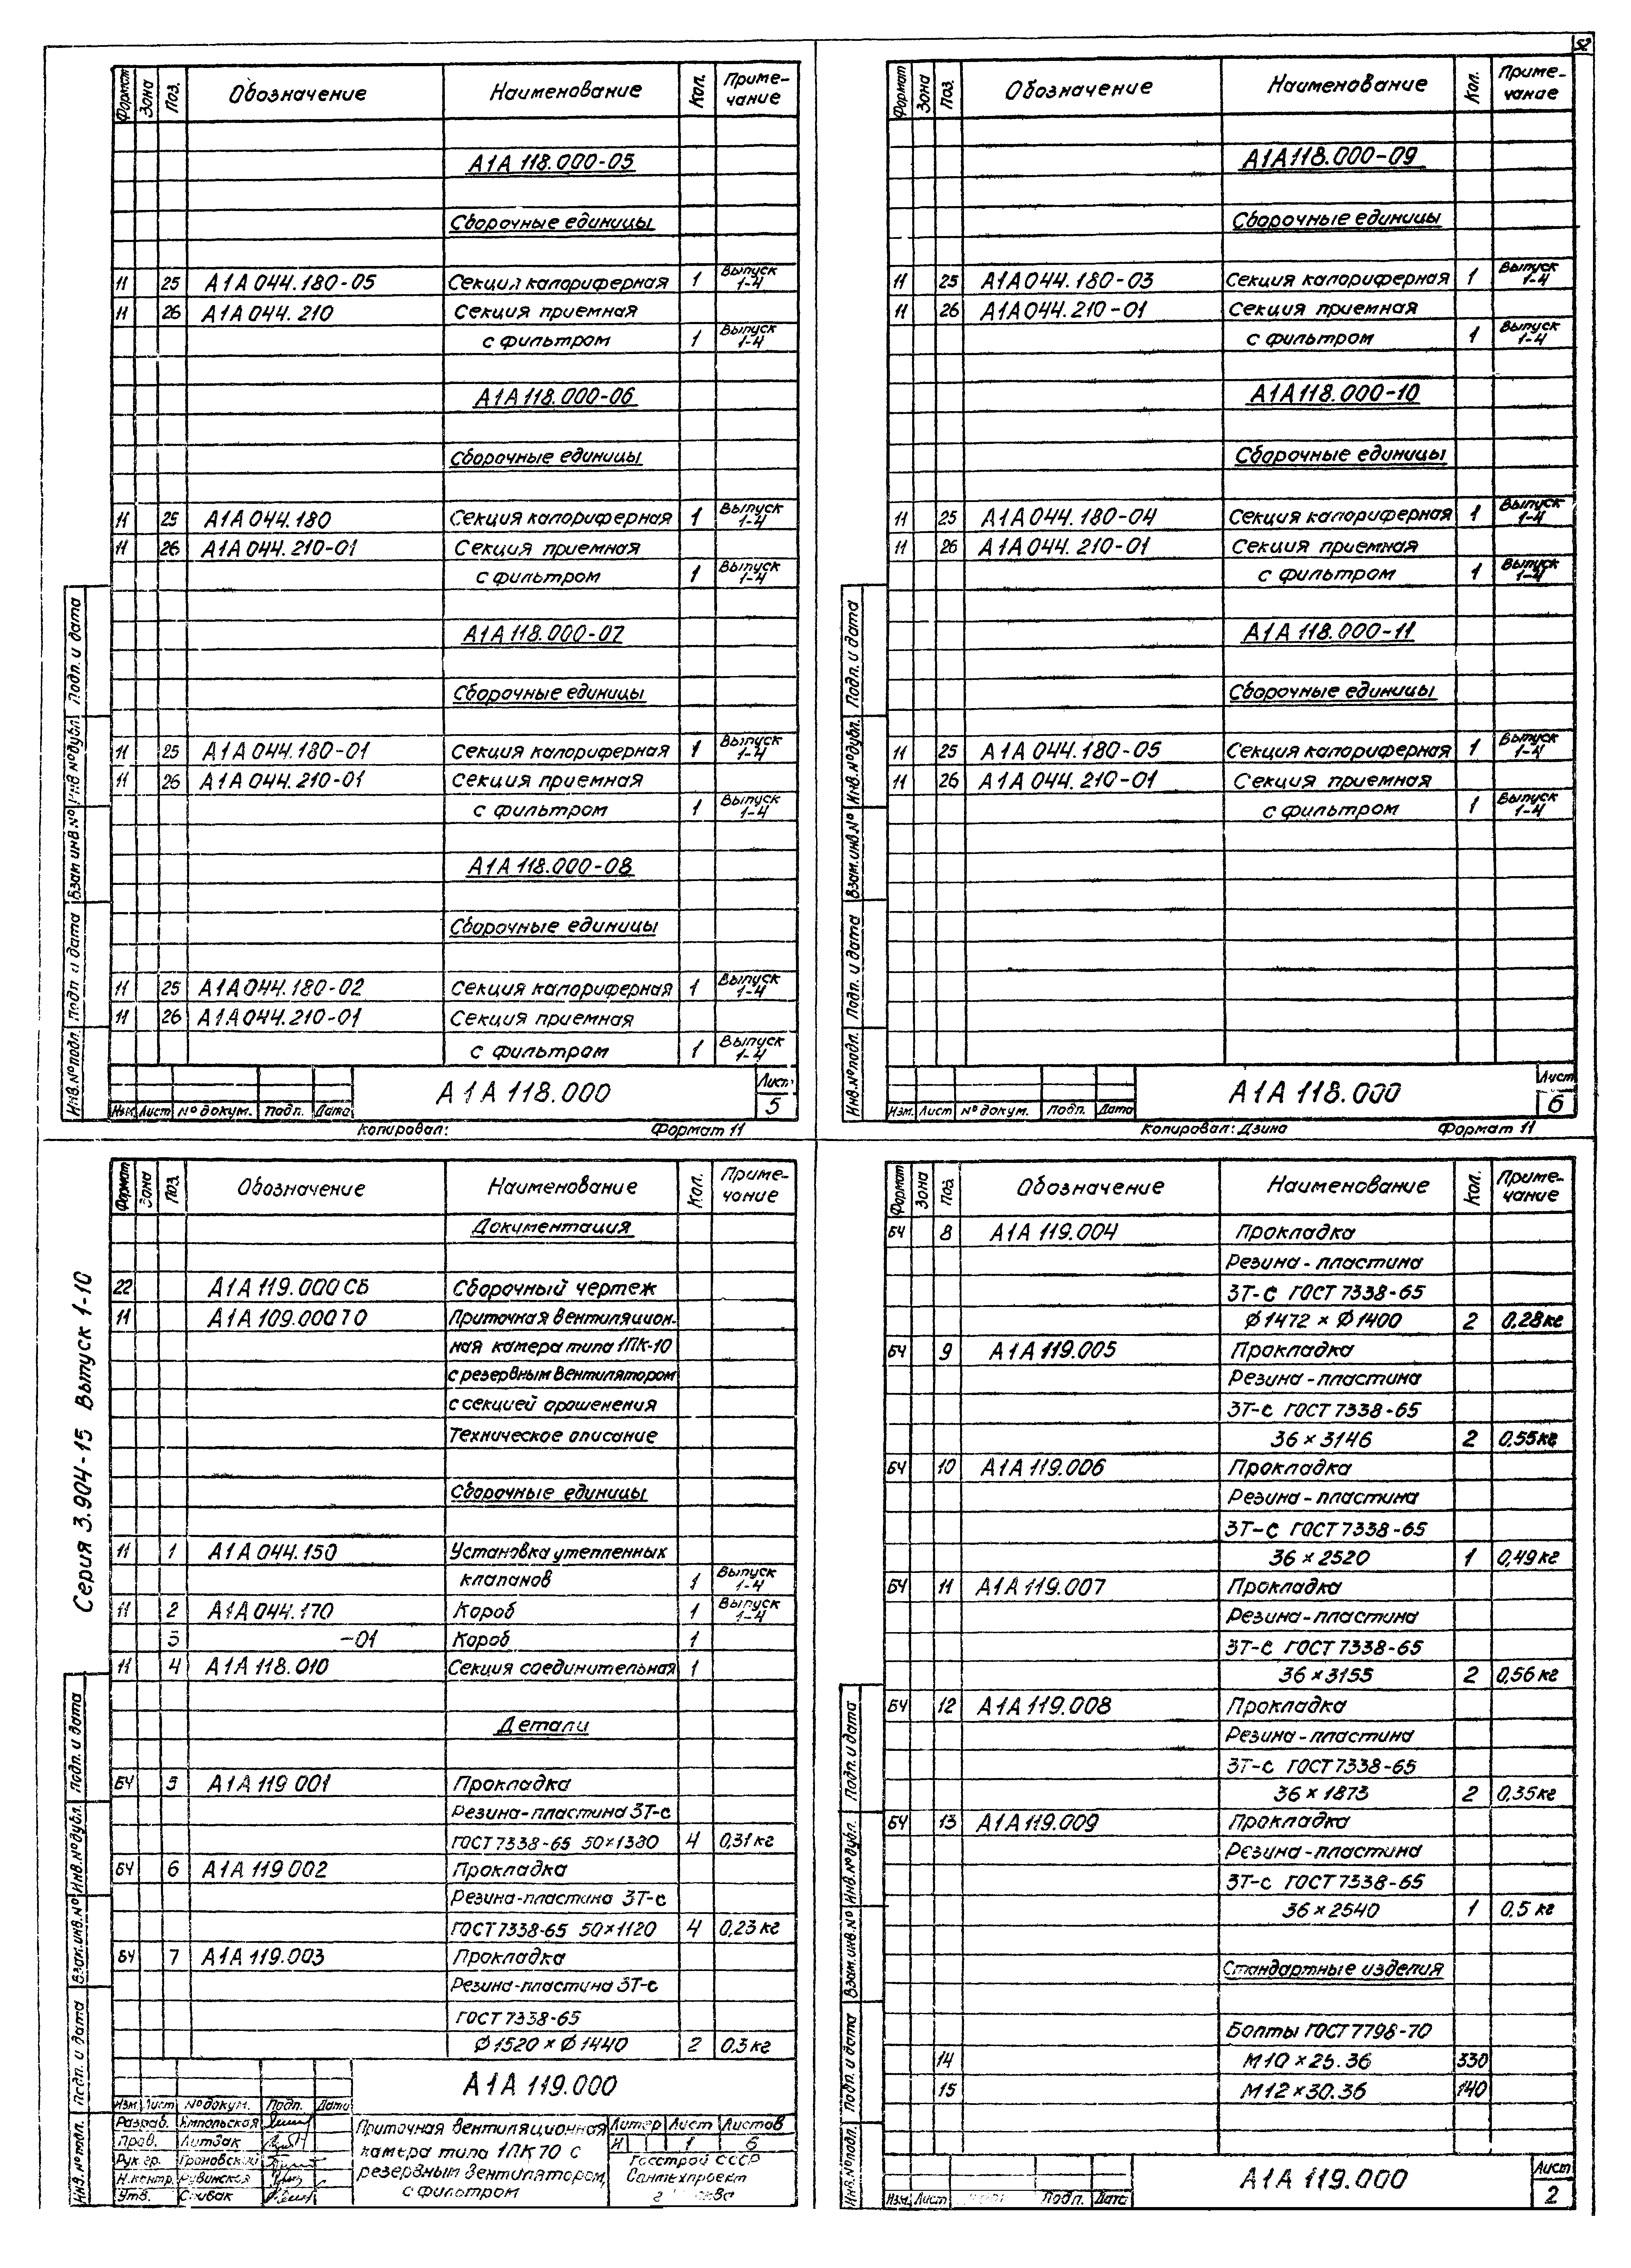 52
Формат Зона Поз. Обозначение Наименование Кол. Приме-
чание
А1А 118.000-05
Сборочные единицы
11 25 А1А 044.180-05 Секция калориферная 1 Выпуск
1-4
11 26 А1А 044.210 Секция приемная
с фильтром 1 Выпуск
1-4
А1А 118.000-06
Сборочные единицы
11 25 А1А 044.180 Секция калориферная 1 Выпуск
1-4
11 26 А1А 044.210-01 Секция приемная
с фильтром 1 Выпуск
1-4
А1А 118.000-07
Сборочные единицы
11 25 А1А 044.180-01 Секция калориферная 1 Выпуск
1-4
11 26 А1А 044.210-01 Секция приемная
с фильтром 1 Выпуск
1-4
А1А 118.000-08
Сборочные единицы
11 25 А1А 044.180-02 Секция калориферная 1 Выпуск
1-4
11 26 А1А 044.210-01 Секция приемная
с фильтром 1 Выпуск
1-4
Инв.№ подл. Подп. и дата Взам инв № Инв № дубл. Подп. и дата
Изм Лист № докум. Подп. Дата А1А 118.000 Лист
5
Копировал: Формат 11
Формат Зона Поз. Обозначение Наименование Кол. Приме-
чание
А1А 118.000-09
Сборочные единицы
11 25 А1А 044.180-03 Секция калориферная 1 Выпуск
1-4
11 26 А1А 044.210-01 Секция приемная
с фильтром 1 Выпуск
1-4
А1А 118.000-10
Сборочные единицы
11 25 А1А 044.180-04 Секция калориферная 1 Выпуск
1-4
11 26 А1А 044.210-01 Секция приемная
с фильтром 1 Выпуск
1-4
А1А 118.000-11
Сборочные единицы
11 25 А1А 044.180-05 Секция калориферная 1 Выпуск
1-4
11 26 А1А 044.210-01 Секция приемная
с фильтром 1 Выпуск
1-4
Инв.№ подл. Подп. и дата Взам.инв.№ Инв.№ дубл. Подп. и дата
Изм. Лист № докум. Подп. Дата А1А 118.000 Лист
6
Копировал: Дзина Формат 11
Серия 3.904-15 Выпуск 1-10
Формат Зона Поз. Обозначение Наименование Кол. Приме-
чание
Документация
22 А1А 119.000 СБ Сборочный чертеж
11 А1А 109.000 ТО Приточная вентиляцион-
ная камера типа 1ПК-10
с резервным вентилятором
с секцией орошенения
Техническое описание
Сборочные единицы
11 1 А1А 044.150 Установка утепленных
клапанов 1 Выпуск
1-4
11 2 А1А 044.170 Короб 1 Выпуск
1-4
3 -01 Короб 1
11 4 А1А 118.010 Секция соединительная 1
Детали
БЧ 5 А1А 119 001 Прокладка
Резина-пластина 3Т-с
ГОСТ 7338-65 50×1380 4 0,31 кг
БЧ 6 А1А 119 002 Прокладка
Резина-пластина 3Т-с
ГОСТ 7338-65 50×1120 4 0,23 кг
БЧ 7 А1А 119.003 Прокладка
Резина-пластина 3Т-с
ГОСТ 7338-65
Ф 1520 × Ф 1440 2 0.3 кг
Инв.№ подл. Подп. и дата Взам.инв.№ Инв.№ дубл. Подп. и дата
А1А 119.000
Изм Лист № докум. Подп. Дата
Разраб.
Пров. Литвак
Рук гр. Грановский
Н.контр. Рувинская
Утв. Спивак
Приточная вентиляционная
камера типа 1ПК 70 с
резервным вентилятором,
с фильтром
Литер Лист Листов
И 1 6
Госстрой СССР
Сантехпроект
Формат Зона Поз. Обозначение Наименование Кол. Приме-
чание
БЧ 8 А1А 119.004 Прокладка
Резина-пластина
3Т-с ГОСТ 7338-65
Ф 1472 × Ф 1400 2 0,28 кг
БЧ 9 А1А 119.005 Прокладка
Резина-пластина
3Т-с ГОСТ 7338-65
36 × 3146 2 0,55 кг
БЧ 10 А1А 119.006 Прокладка
Резина-пластина
3Т-с ГОСТ 7338-65
36 × 2520 1 0,49 кг
БЧ 11 А1А 119.007 Прокладка
Резина-пластина
3Т-с ГОСТ 7338-65
36 × 3155 2 0,56 кг
БЧ 12 А1А 119.008 Прокладка
Резина-пластина
3Т-с ГОСТ 7338-65
36 × 1873 2 0,35 кг
БЧ 13 А1А 119.009 Прокладка
Резина-пластина
3Т-с ГОСТ 7338-65
36 × 2540 1 0.5 кг
Стандартные изделия
Болты ГОСТ 7798-70
14 М10 × 25.36 330
15 М12 × 30.36 140
Инв.№ подл. Подп. и дата Взам.инв.№ Инв.№ дубл. Подп. и дата
Изм. Лист Подп. Дата А1А 119.000 Лист
2